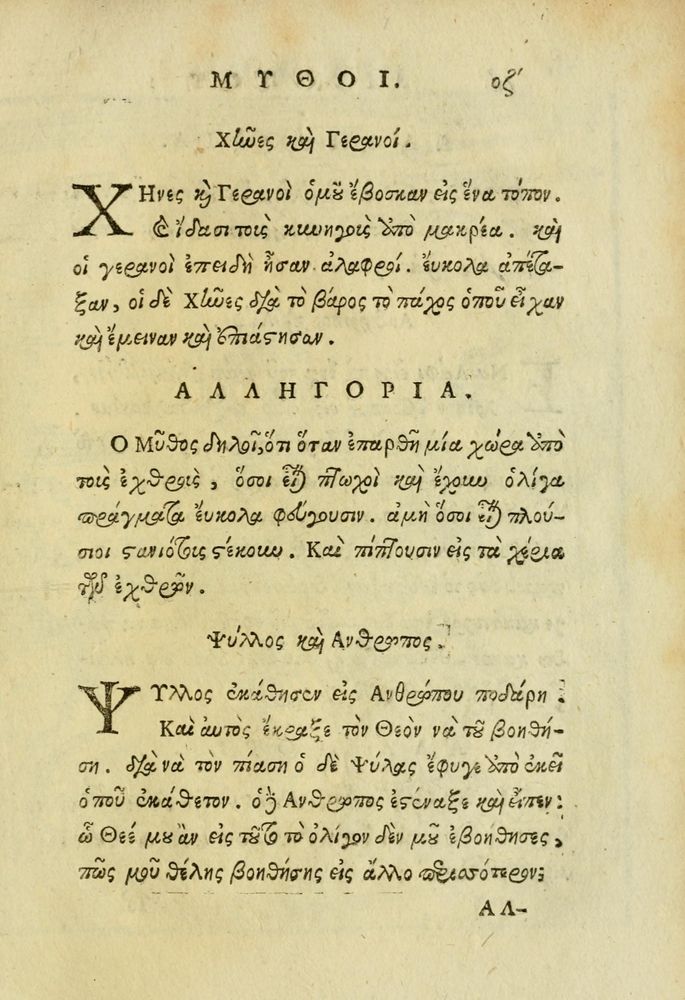 ΜΥΘΟΙ. οζʹ
Χῆνες καὶ Γερανοί.
ΧΗνες κὶ Γερανοὶ ὁμοῦ ἔβοσκαν εἰς ἕνα τόπον.
Εἴδασι τοὶς κυνηγοὶς ἀπὸ μακρέα. καὶ
οἱ γερανοὶ ἐπειδὴ ἦσαν ἀλαφροί. ἔυκολα ἀπέτα-
ξαν, οἱ δὲ Χῆνες διὰ τὸ βάρος τὸ πάχος ὁποῦ εἶχαν
καὶ ἔμειναν καὶ ἐπιάστησαν.
ΑΛΛΗΓΟΡΙΑ.
Ο Μῦθος δηλοῖ, ὅτι ὅταν ἐπαρθῆ μία χώρα ἀπὸ
τοὶς ἐχθροὶς, ὅσοι εἶναι πτωχοὶ καὶ ἔχουν ὀλίγα
πράγματα ἔυκολα φεύγουσιν. ἀμὴ ὅσοι εἶναι πλού-
σιοι στανιότως στέκουν. Καὶ πίπτουσιν εἰς τὰ χέρια
τῶν ἐχθρῶν.
Ψύλλος καὶ Ανθρωπος.
ΨΥλλος ἐκάθησεν εἰς Ανθρώπου ποδάρη:
Καὶ ἀυτὸς ἔκραξε τὸν Θεὸν νὰ τοῦ βοηθή-
ση. διὰ νὰ τὸν πίαση ὁ δὲ Ψύλας ἔφυγε ἀπὸ ἐκεῖ
ὁποῦ ἐκάθετον. ὁ δὲ Ανθρωπος ἐστέναξε καὶ εἶπεν:
ὦ Θεέ μου ἂν εἰς τοῦτο τὸ ὀλίγον δὲν μοῦ ἐβοηθησες,
πῶς μοῦ θέλης βοηθήσης εἰς ἄλλο περισσότερον;
ΑΛ-